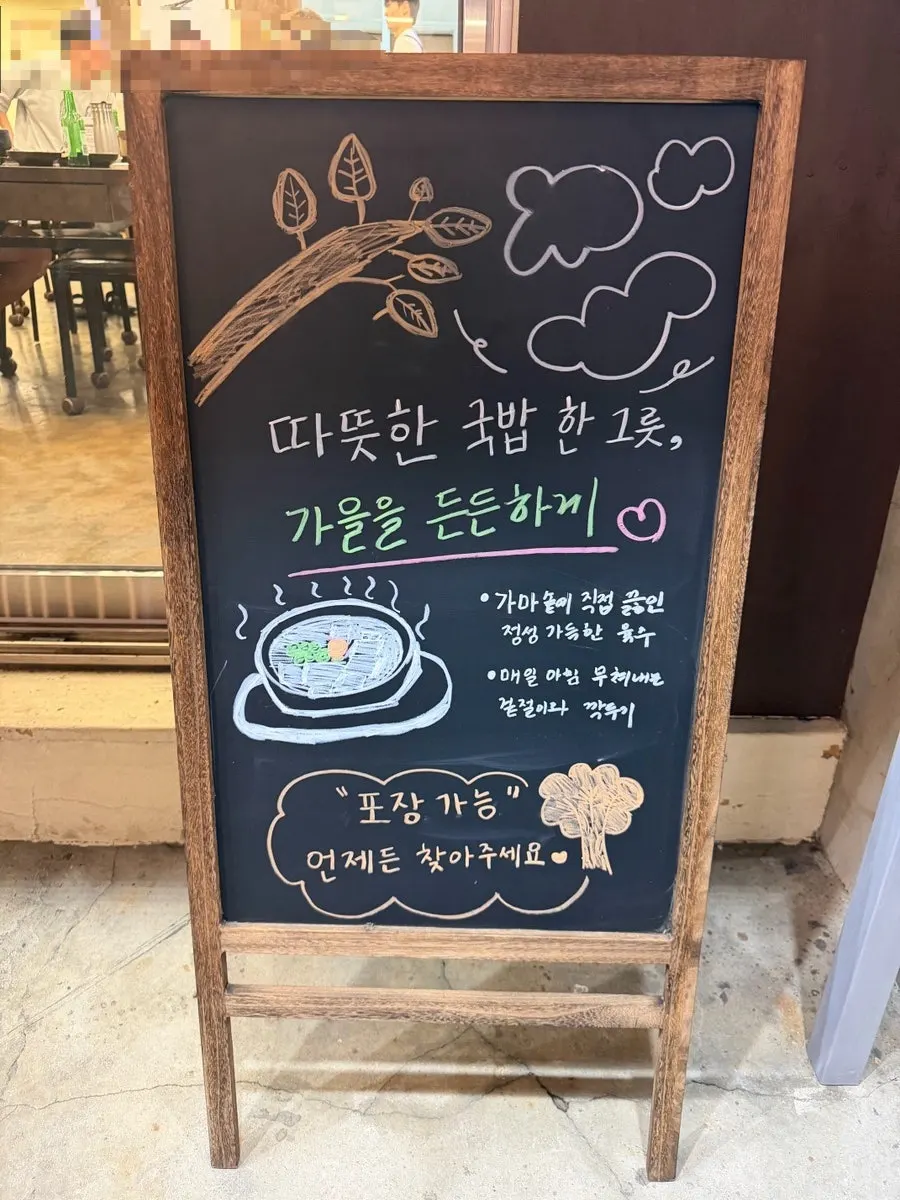 따뜻한 국밥 한 그릇,
가을을 든든하게
• 가마솥에 직접 끓인
정성 가득한 육수
• 매일 아침 무쳐내는
겉절이와 깍두기
"포장 가능"
언제든 찾아주세요